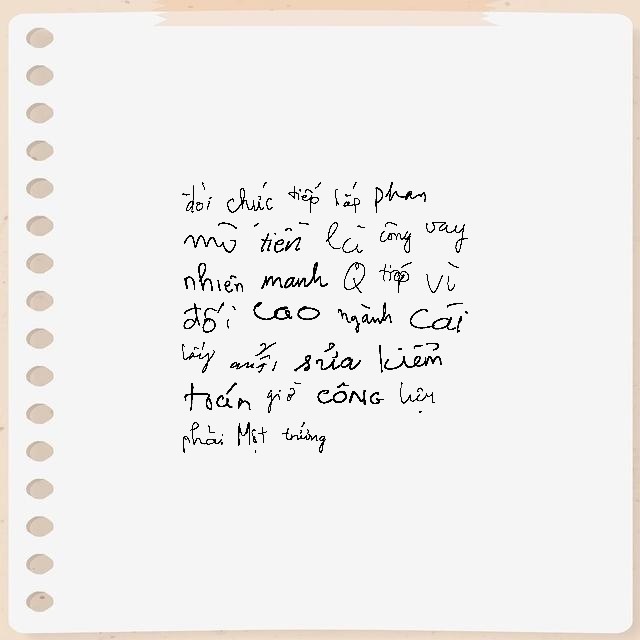 đời chức tiếp lắp phan
mũ tiền là công vay
nhiên manh Q tiếp vì
đối cao ngành Cái
lấy sửa kiểm
toán giờ CÔNG
phải Một trường